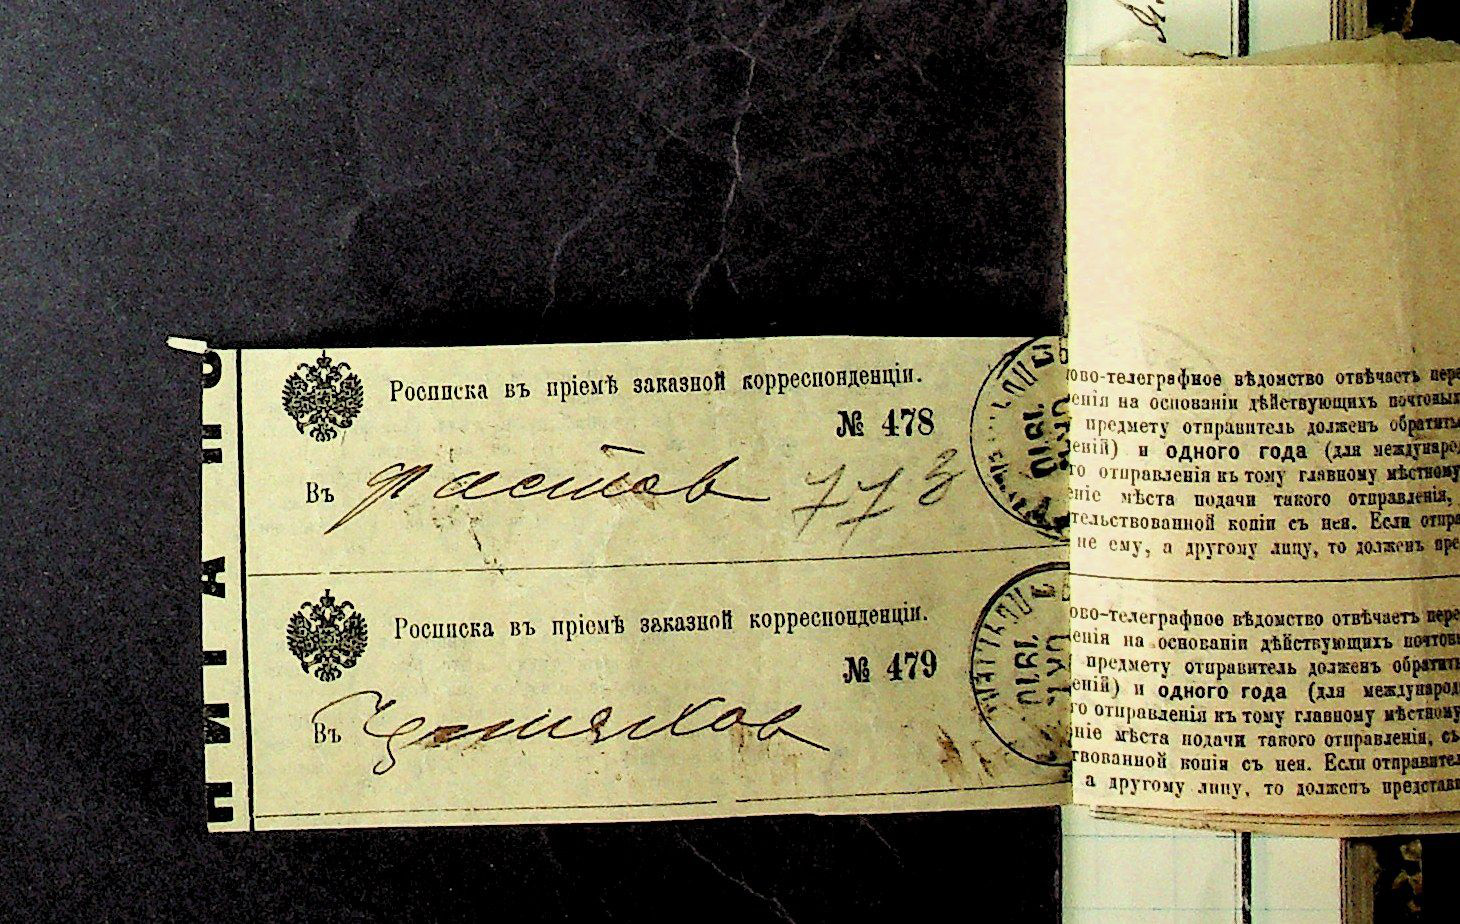 Росписка въ пріемѣ заказной корреспонденціи.
№ 478
Въ Фастов 773
Росписка въ пріемѣ заказной корреспонденціи.
№ 479
Въ
1910
1910
ово-телеграфное вѣдомство отвѣчаетъ пере
енія на основаніи дѣйствующихъ почтовыхъ
предмету отправитель долженъ обратить
еній) и одного года (для международ
го отправленія къ тому главному мѣстному
ніе мѣста подачи такого отправленія,
тельствованной копіи съ нея. Если отпра
не ему, а другому лицу, то долженъ пре
ово-телеграфное вѣдомство отвѣчаетъ пере
енія на основаніи дѣйствующихъ почтов
предмету отправитель долженъ обратить
еній) и одного года (для международ
го отправленія къ тому главному мѣстному
ніе мѣста подачи такого отправленія, съ
твованной копіи съ нея. Если отправител
а другому лицу, то долженъ представи